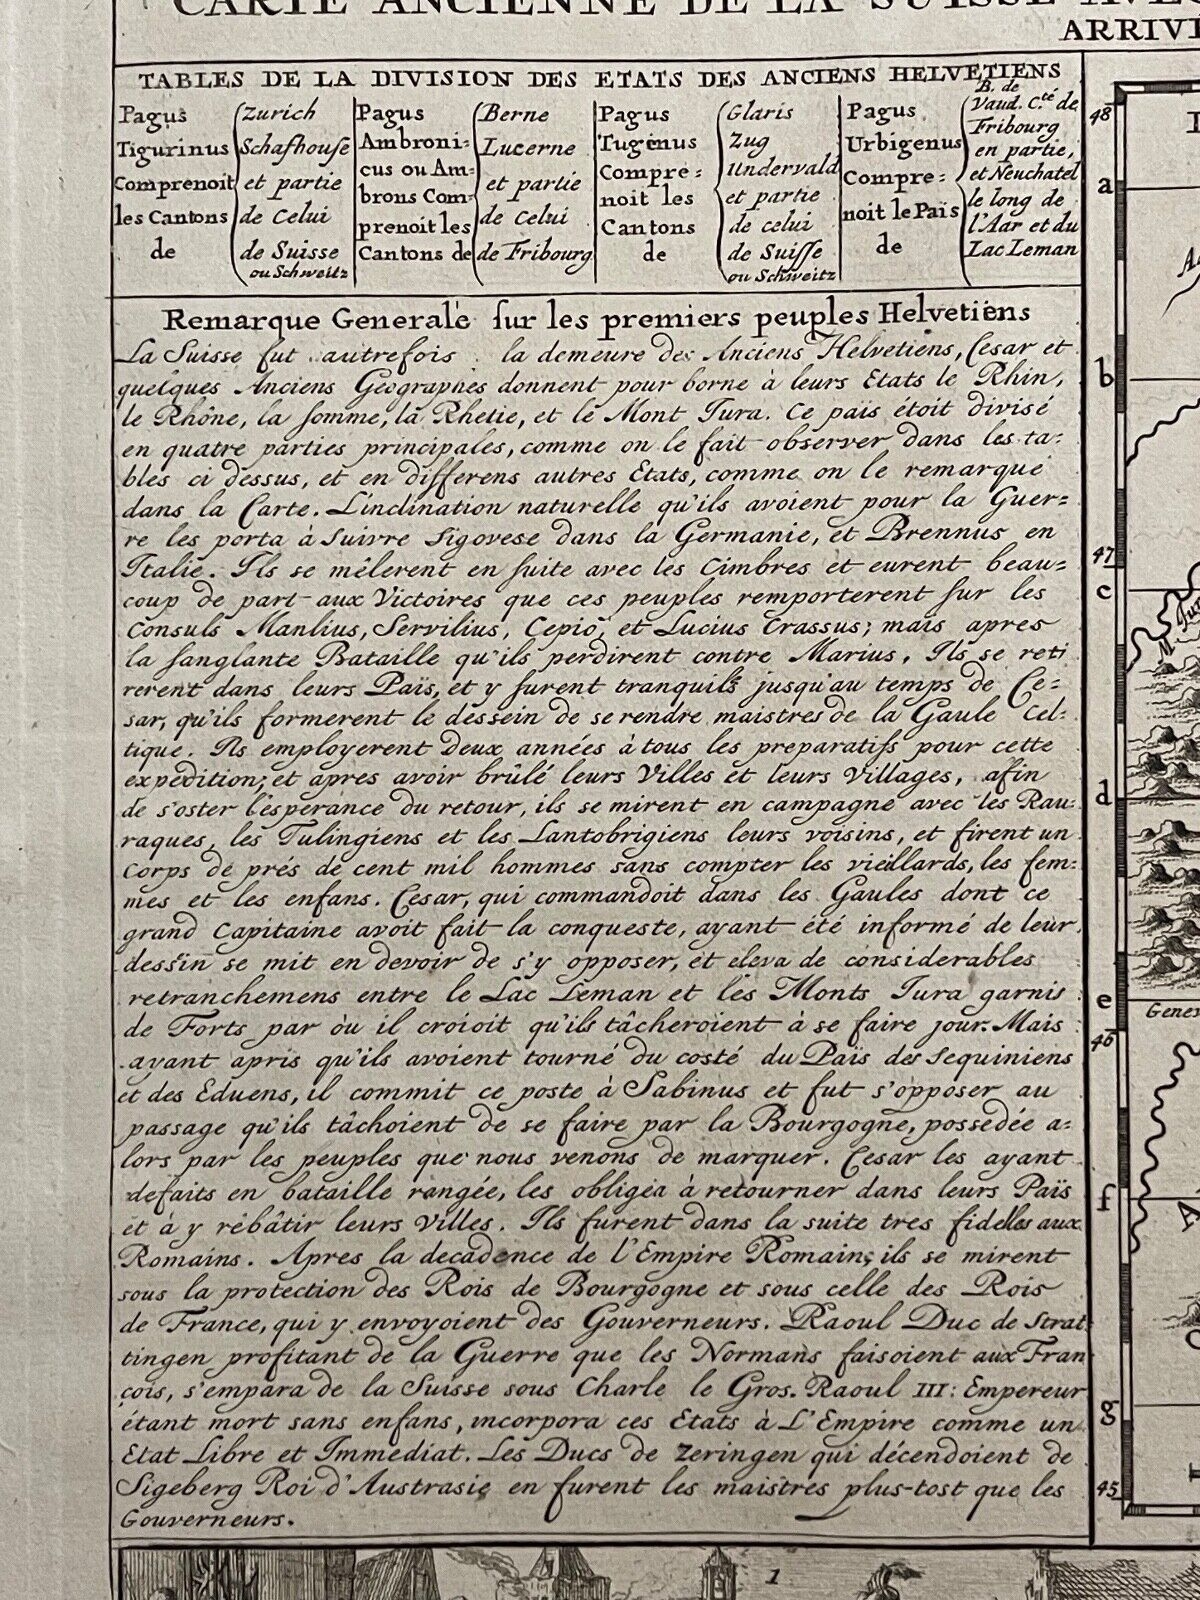 CARTE ANCIENNE DE LA SUISSE AVEC
ARRIVE
TABLES DE LA DIVISION DES ETATS DES ANCIENS HELVETIENS
Pagus
Tigurinus
Comprenoit
les Cantons
de
Zurich
Schafhouse
et partie
de Celui
de Suisse
ou Schweitz
Pagus
Ambroni-
cus ou Am-
brons Com-
prenoit les
Cantons de
Berne
Lucerne
et partie
de Celui
de Fribourg
Pagus
Tugenus
Compre-
noit les
Cantons
de
Glaris
Zug
Undervald
et partie
de celui
de Suisse
ou Schweitz
Pagus
Urbigenus
Compre-
noit le Païs
de
B. de
Vaud. C.té de
Fribourg
en partie,
et Neuchatel
le long de
l'Aar et du
Lac Leman
Remarque Generale sur les premiers peuples Helvetiens
La Suisse fut autrefois la demeure des Anciens Helvetiens, Cesar et
quelques Anciens Geographes donnent pour borne à leurs Etats le Rhin,
le Rhône, la somme, la Rhetie, et le Mont Jura. Ce païs étoit divisé
en quatre parties principales, comme on le fait observer dans les ta-
bles ci dessus, et en differens autres Etats, comme on le remarque
dans la Carte. L'inclination naturelle qu'ils avoient pour la Guer-
re les porta à suivre Sigovese dans la Germanie, et Brennus en
Italie. Ils se mêlerent en suite avec les Cimbres et eurent beau-
coup de part aux Victoires que ces peuples remporterent sur les
Consuls Manlius, Servilius, Cepio, et Lucius Crassus; mais apres
la sanglante Bataille qu'ils perdirent contre Marius, Ils se reti
rerent dans leurs Païs, et y furent tranquils jusqu'au temps de Ce-
sar, qu'ils formerent le dessein de se rendre maistres de la Gaule Cel-
tique. Ils employerent deux années à tous les preparatifs pour cette
expedition; et apres avoir brûlé leurs Villes et leurs Villages, afin
de s'oster l'esperance du retour, ils se mirent en campagne avec les Rau-
raques, les Tulingiens et les Lantobrigiens leurs voisins, et firent un
Corps de prés de cent mil hommes sans compter les vieillards, les fem-
mes et les enfans. Cesar, qui commandoit dans les Gaules dont ce
grand Capitaine avoit fait la conqueste, ayant été informé de leur
dessein se mit en devoir de s'y opposer, et eleva de considerables
retranchemens entre le Lac Leman et les Monts Jura garnis
de Forts par où il croioit qu'ils tâcheroient à se faire jour. Mais
ayant apris qu'ils avoient tourné du costé du Païs des Sequiniens
et des Eduens, il commit ce poste à Sabinus et fut s'opposer au
passage qu'ils tâchoient de se faire par la Bourgogne, possedée a-
lors par les peuples que nous venons de marquer. Cesar les ayant
defaits en bataille rangée, les obligea à retourner dans leurs Païs
et à y rébâtir leurs Villes. Ils furent dans la suite tres fidelles aux
Romains. Apres la decadence de l'Empire Romain, ils se mirent
sous la protection des Rois de Bourgogne et sous celle des Rois
de France, qui y envoyoient des Gouverneurs. Raoul Duc de Strat
tingen profitant de la Guerre que les Normans faisoient aux Fran
çois, s'empara de la Suisse sous Charle le Gros. Raoul III: Empereur
étant mort sans enfans, incorpora ces Etats à L'Empire comme un
Etat Libre et Immediat. Les Ducs de Zeringen qui décendoient de
Sigeberg Roi d'Austrasie en furent les maistres plus-tost que les
Gouverneurs.
48
a
b
47
c
d
e
Genev
46
f
g
45
1